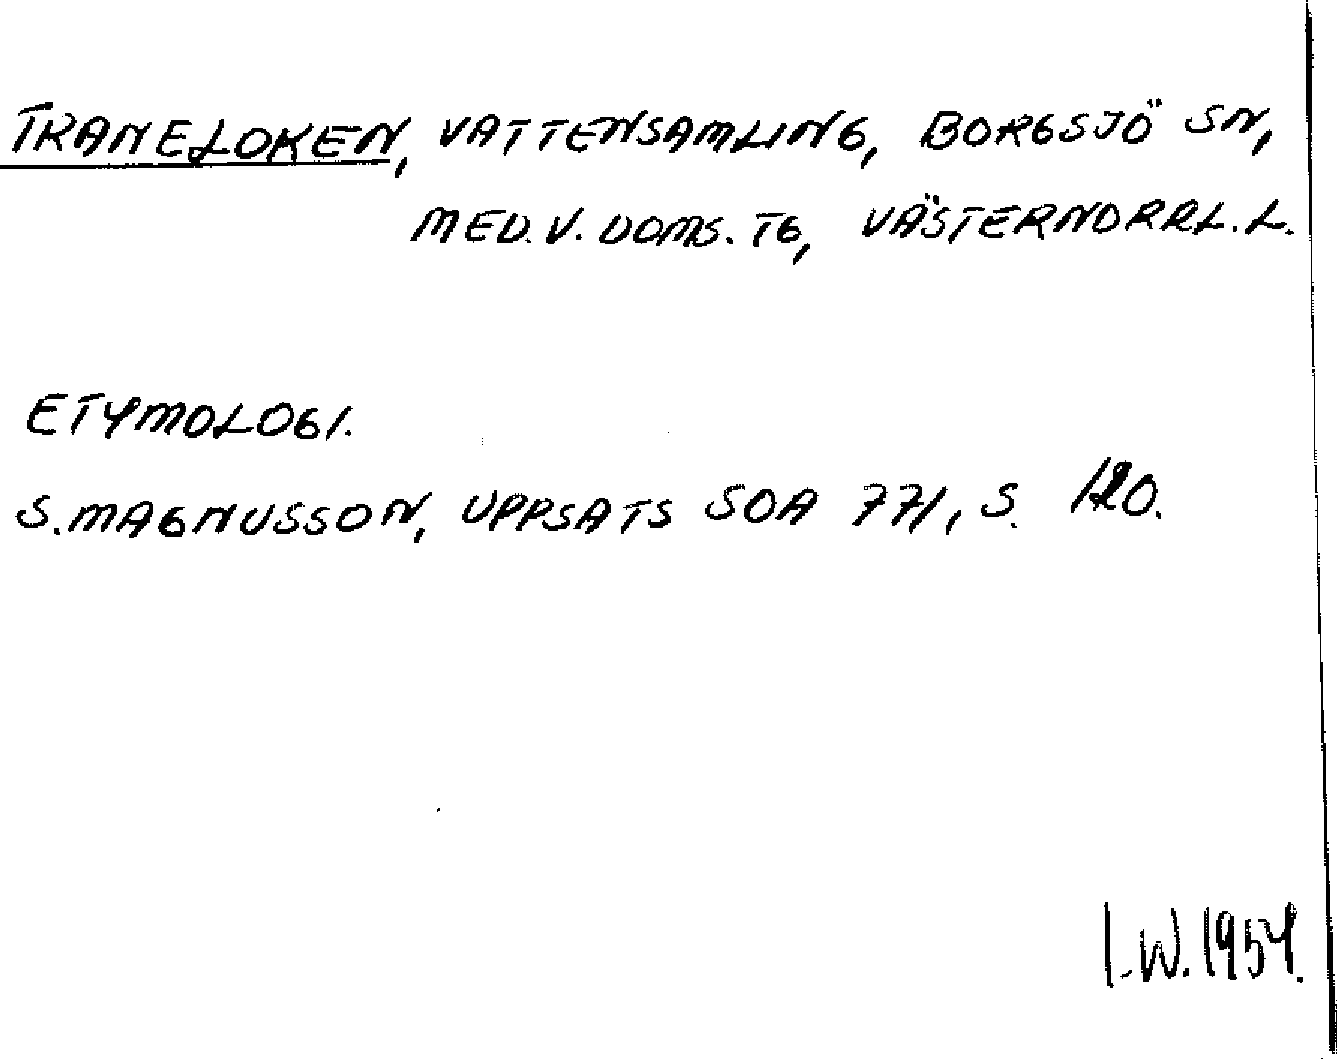 TRANELOKEN, VATTENSAMLING, BORGSJÖ SN,
MED. V. DOMS. TG, VÄSTERNORRL. L.
ETYMOLOGI.
S. MAGNUSSON, UPPSATS SOA 771, S. 120.
I. W. 1954.